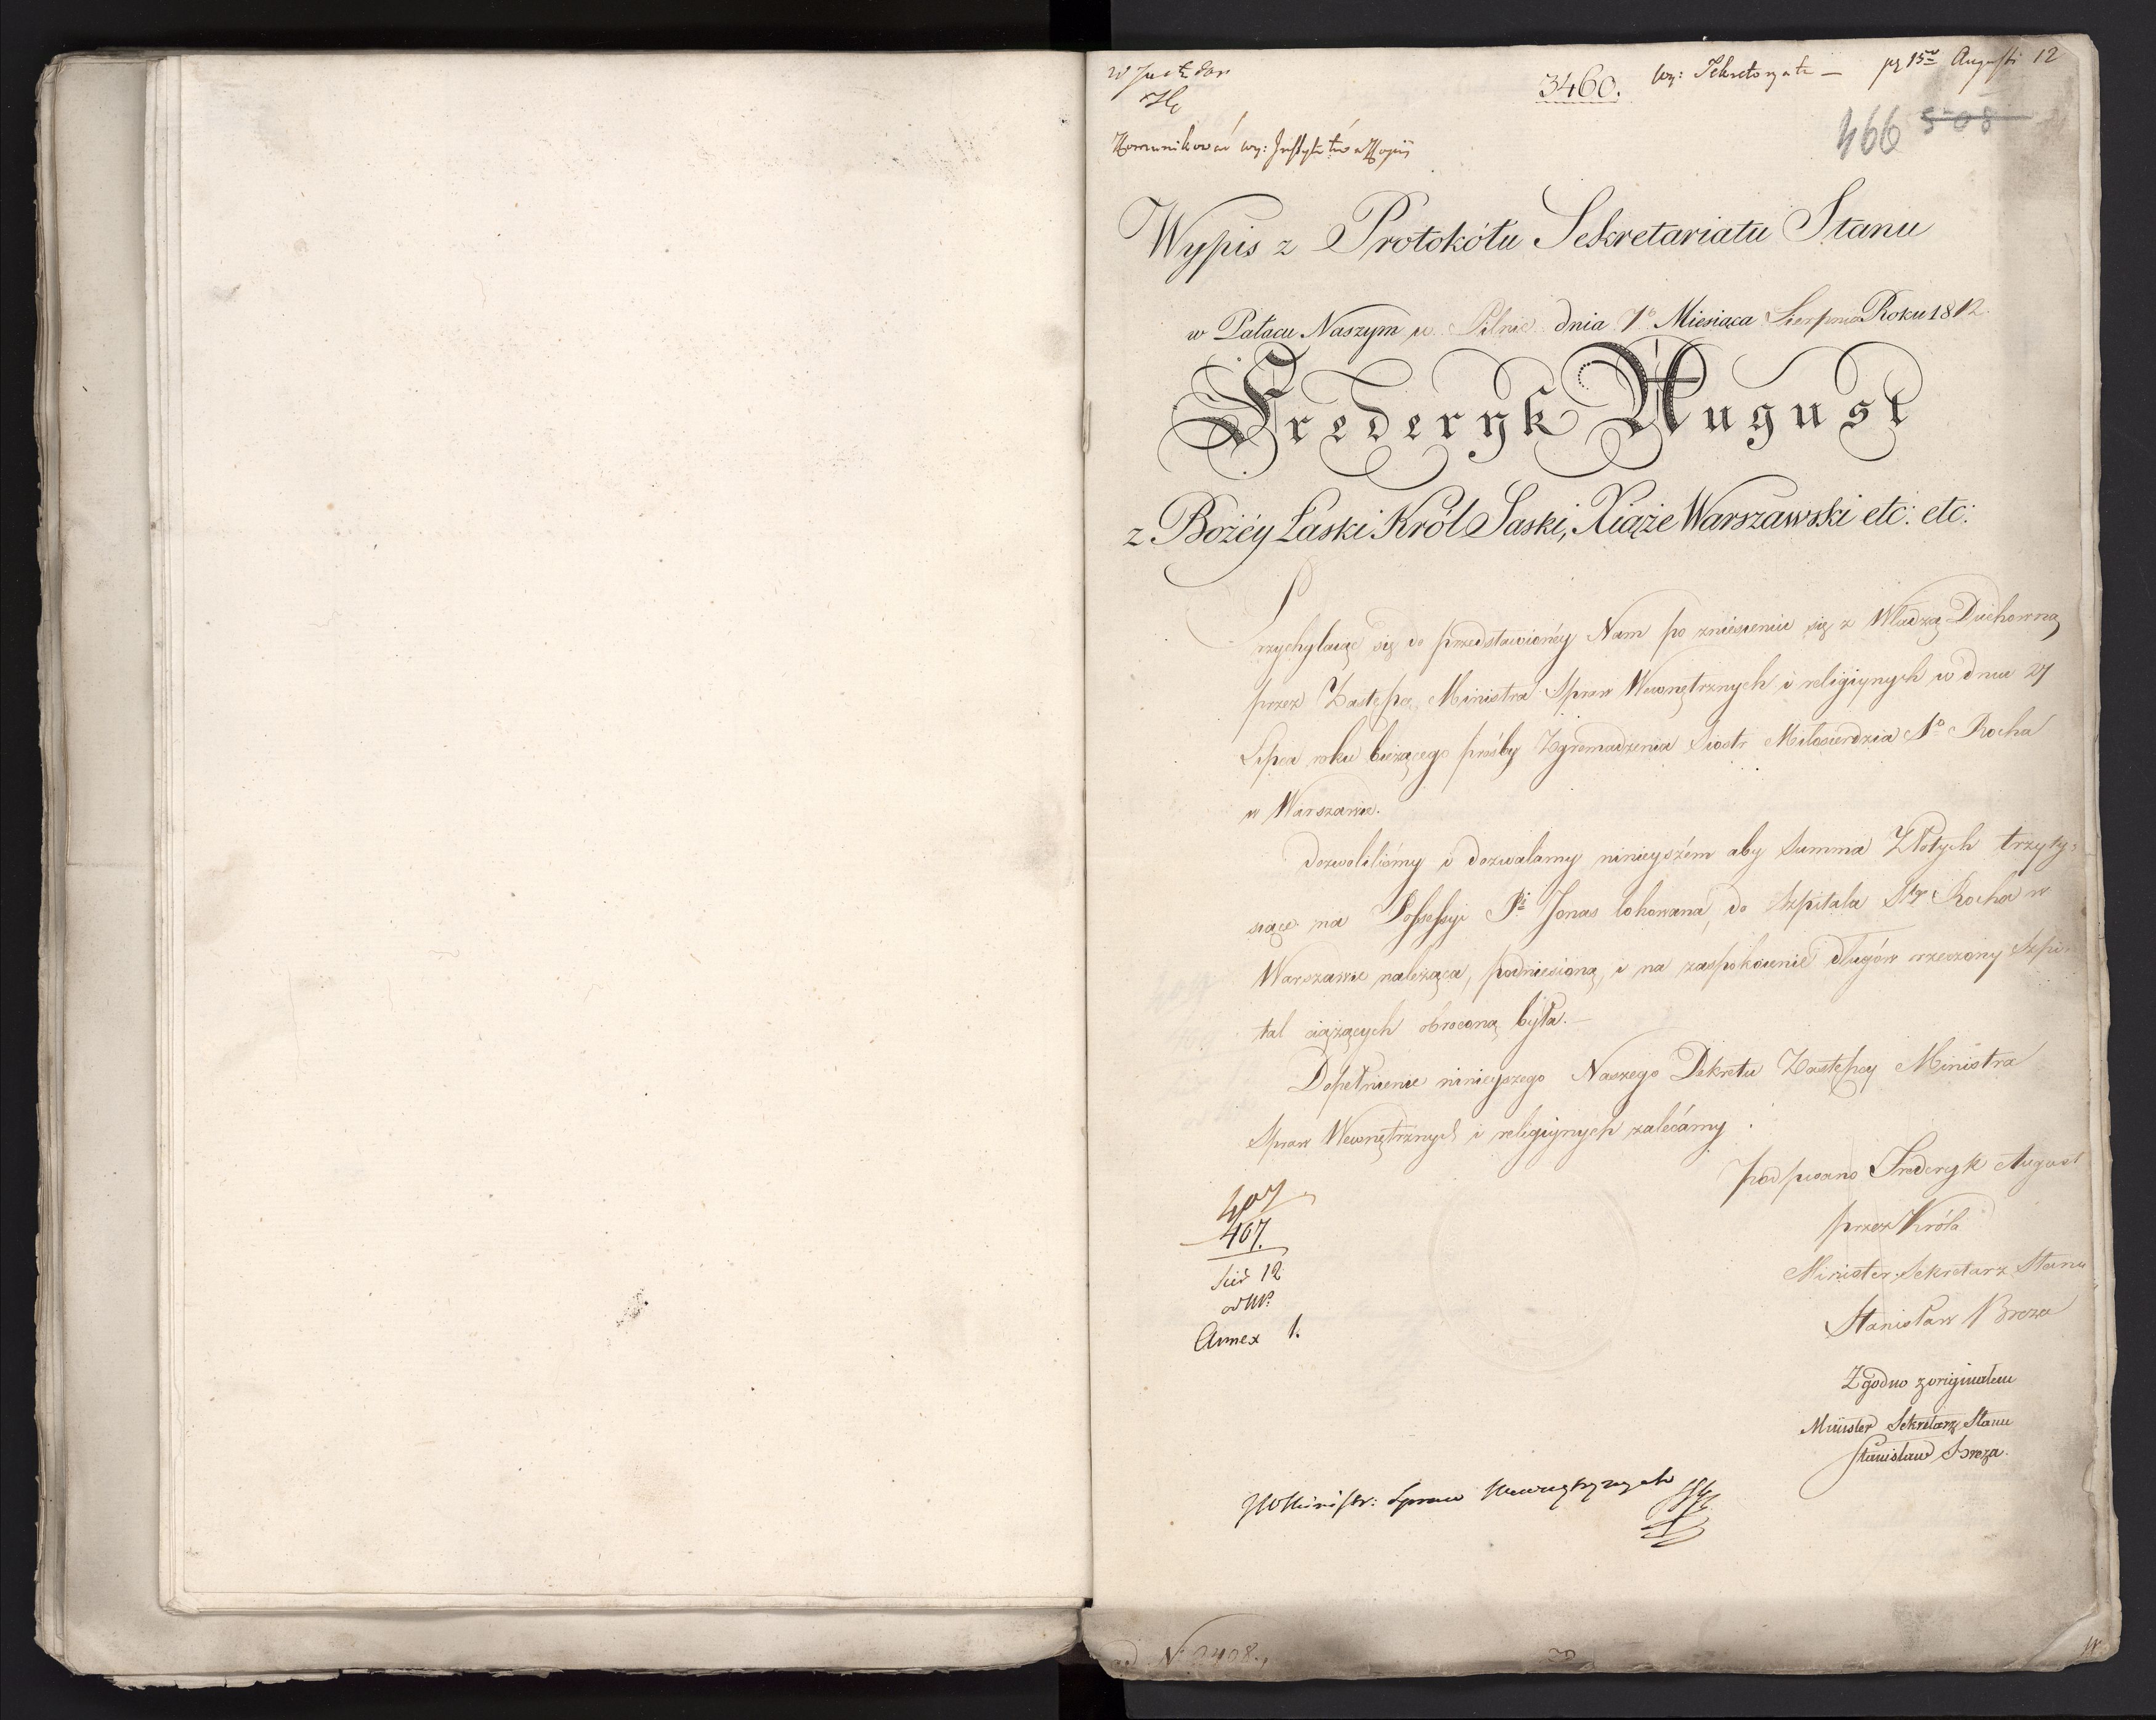 3460.
wy: Sekretaryatu — pr 15 Augusti 12
466 508
Komunikować wy: Instytutów w Kopii
Wypis z Protokółu Sekretariatu Stanu
w Pałacu Naszym w Pilnic dnia 7º Miesiąca Sierpnia Roku 1812.
Frederyk August
z Bożéy Łaski Król Saski, Xiąże Warszawski etc: etc:
Przychylaiąc się do przedstawionéy Nam po zniesieniu się z Władzą Duchowną
przez Zastępcę Ministra Spraw Wewnętrznych i religiynych w dniu 27
Lipca roku bieżącego prośby Zgromadzenia Siostr Miłosierdzia Sº Rocha
w Warszawie.
dozwoliliśmy i dozwalamy ninieyszém aby Summa Złotych trzyty-
siące na Possessyi Pi Jonas lokowana, do Szpitala Sgo Rocha w
Warszawie należąca, podniesioną, i na zaspokoienie długów rzeczony Szpi-
tal ciążących obroconą była.—
Dopełnienie ninieyszego Naszego Dekretu Zastępcy Ministra
Spraw Wewnętrznych i religiynych zalecamy.
podpisano Frederyk August
przez Króla
Minister Sekretarz Stanu
Stanisław Breza
407
407.
12
Annex 1.
Zgodno z originałem
Minister Sekretarz Stanu
Stanisław Breza.
JW Ministr: Spraw Wewnętrznych
ad Nº 2408.